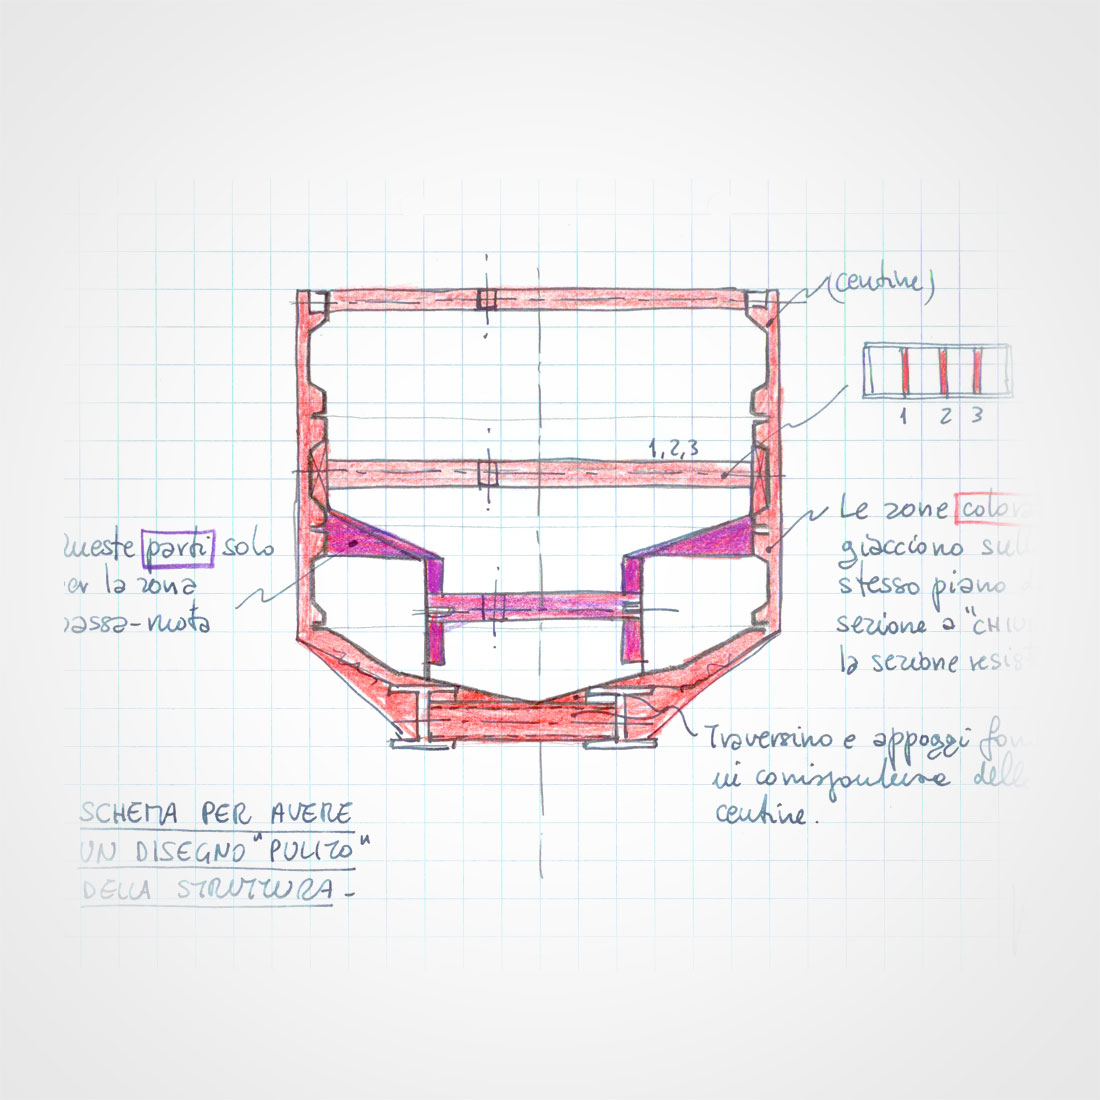 (centine)
1 2 3
1,2,3
Le zone
giacciono
stesso piano
sezione a "CHIU
la sezione resis
parti solo
la zona
passa-ruota
Traversino e appoggi
in corrispondenza
centine.
SCHEMA PER AVERE
UN DISEGNO "PULITO"
DELLA STRUTTURA -